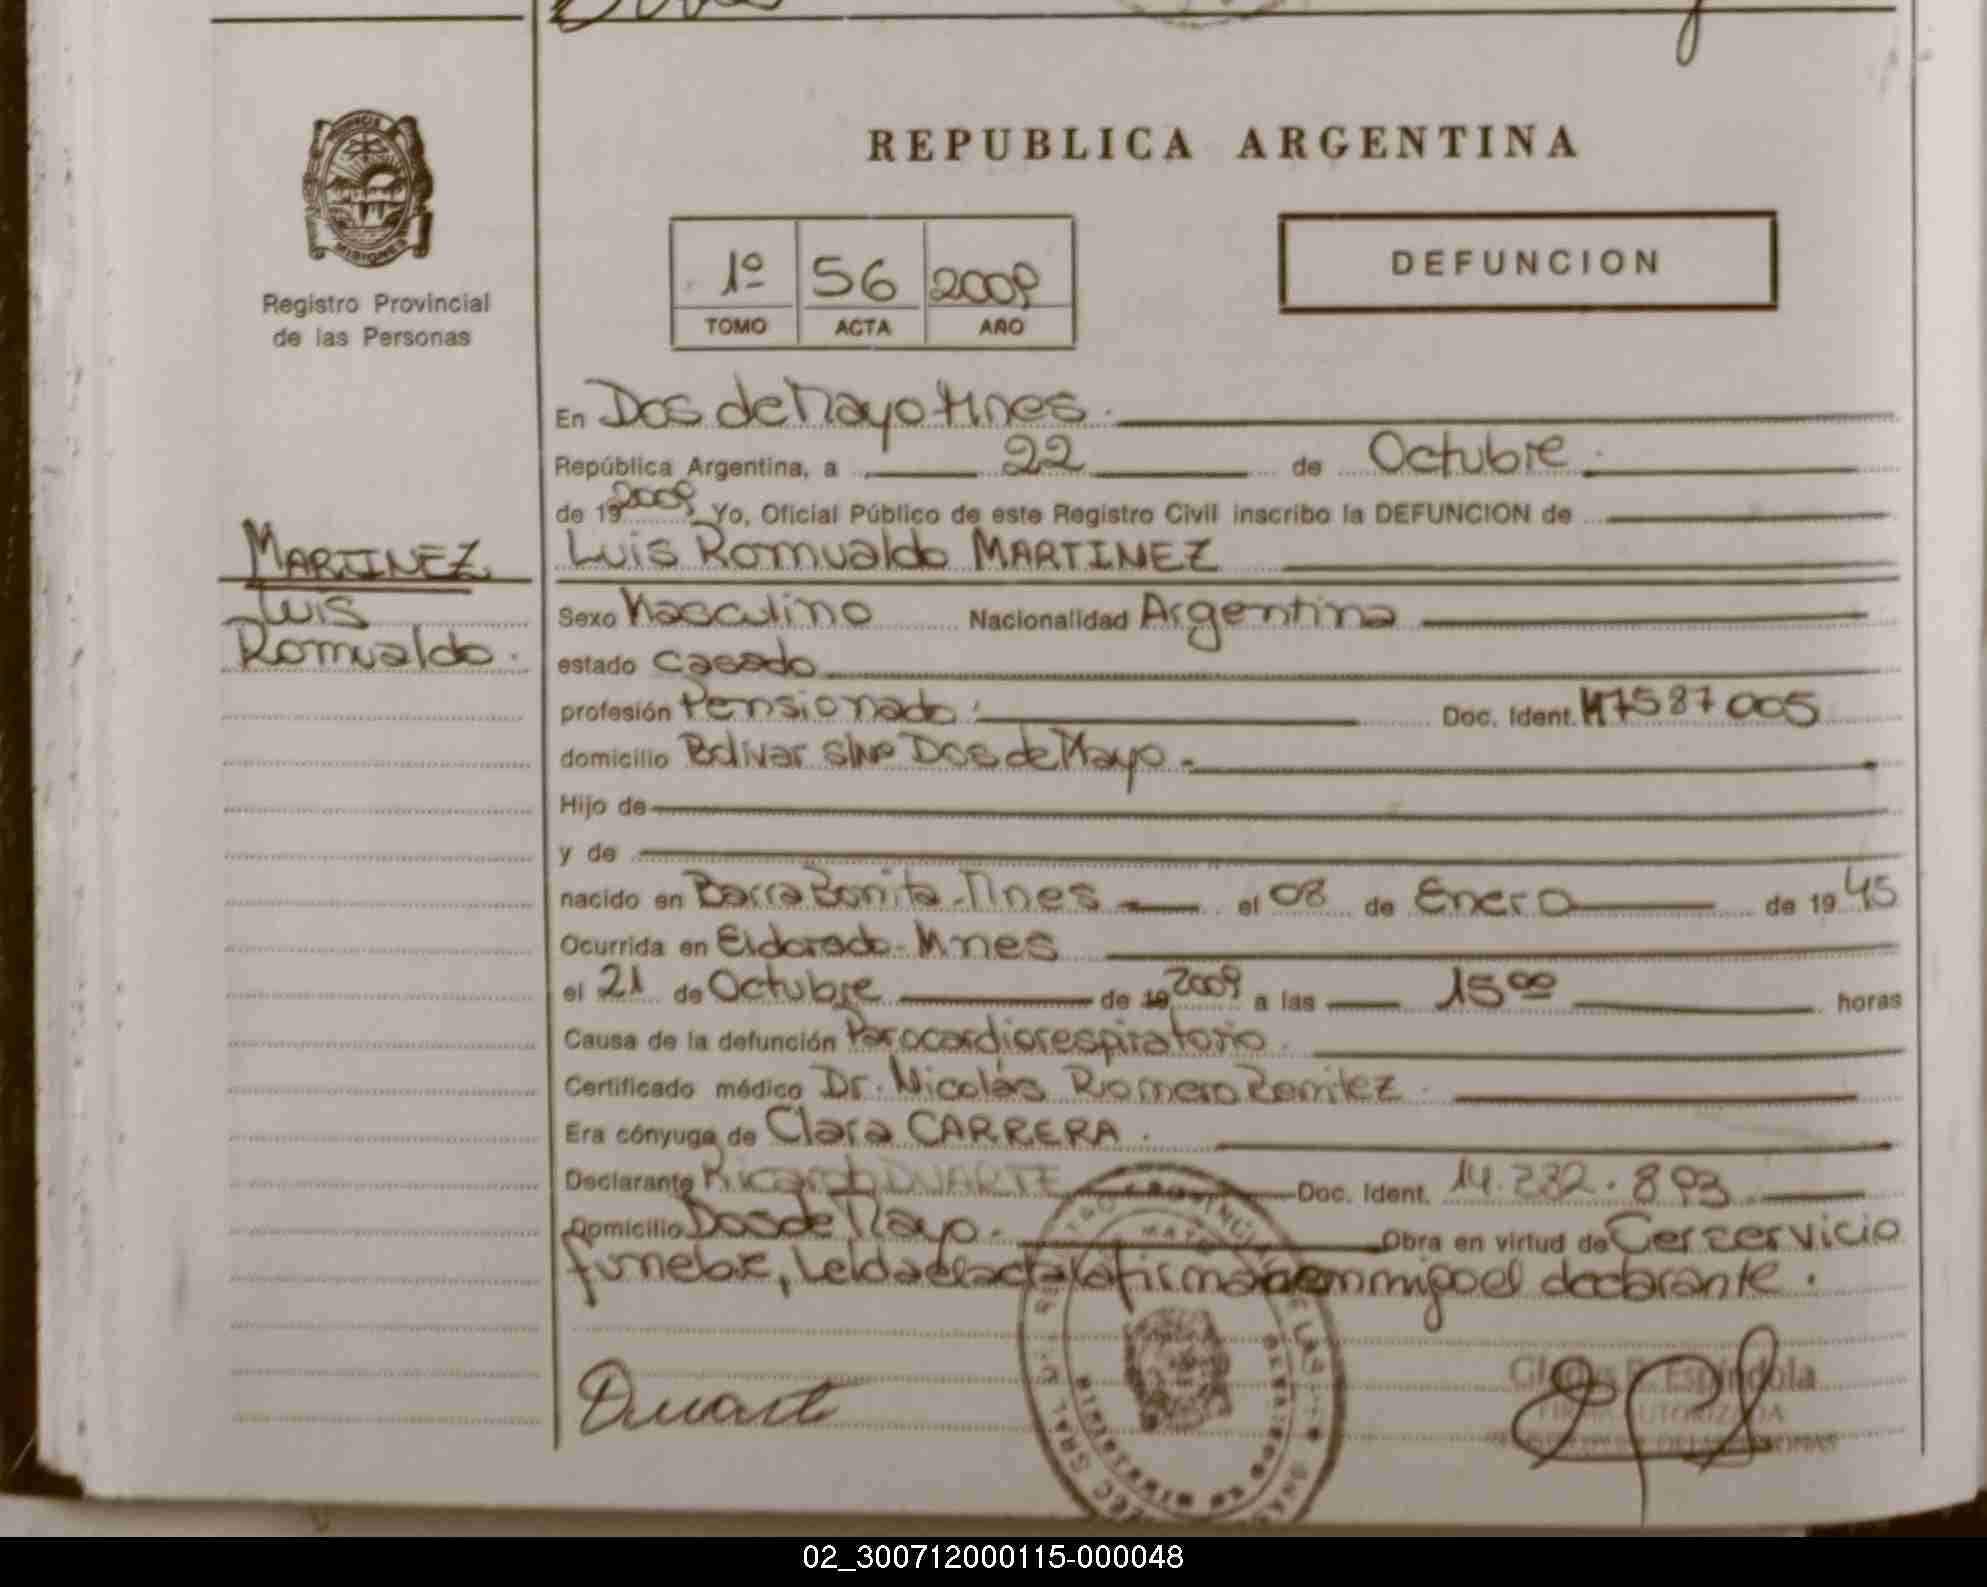 REPUBLICA ARGENTINA
1º 56 2009
TOMO ACTA AÑO
DEFUNCION
PROVINCIA
MISIONES
Registro Provincial
de las Personas
En Dos de Mayo Mnes.
República Argentina, a 22 de Octubre.
de 19 2009 Yo, Oficial Público de este Registro Civil inscribo la DEFUNCION de
MARTINEZ
Luis
Romualdo.
Luis Romualdo MARTINEZ
Sexo Masculino Nacionalidad Argentina
estado casado
profesión Pensionado. Doc. Ident. M7587005
domicilio Bolivar s/nº Dos de Mayo.-
Hijo de
y de
nacido en Barra Bonita-Mnes el 08 de Enero de 19 45
Ocurrida en Eldorado-Mnes
el 21 de Octubre de 19 2009 a las 15 00 horas
Causa de la defunción Parocardiorespiratorio.
Certificado médico Dr. Nicolás Romero Benitez.
Era cónyuge de Clara CARRERA.
Declarante Ricardo DUARTE Doc. Ident. 14.232.893
Domicilio Dos de Mayo.- Obra en virtud de Cer servicio
funebre, Leida el acta la firma con migo el declarante.
Duarte
Gladys R. Espíndola
FIRMA AUTORIZADA
02_300712000115-000048